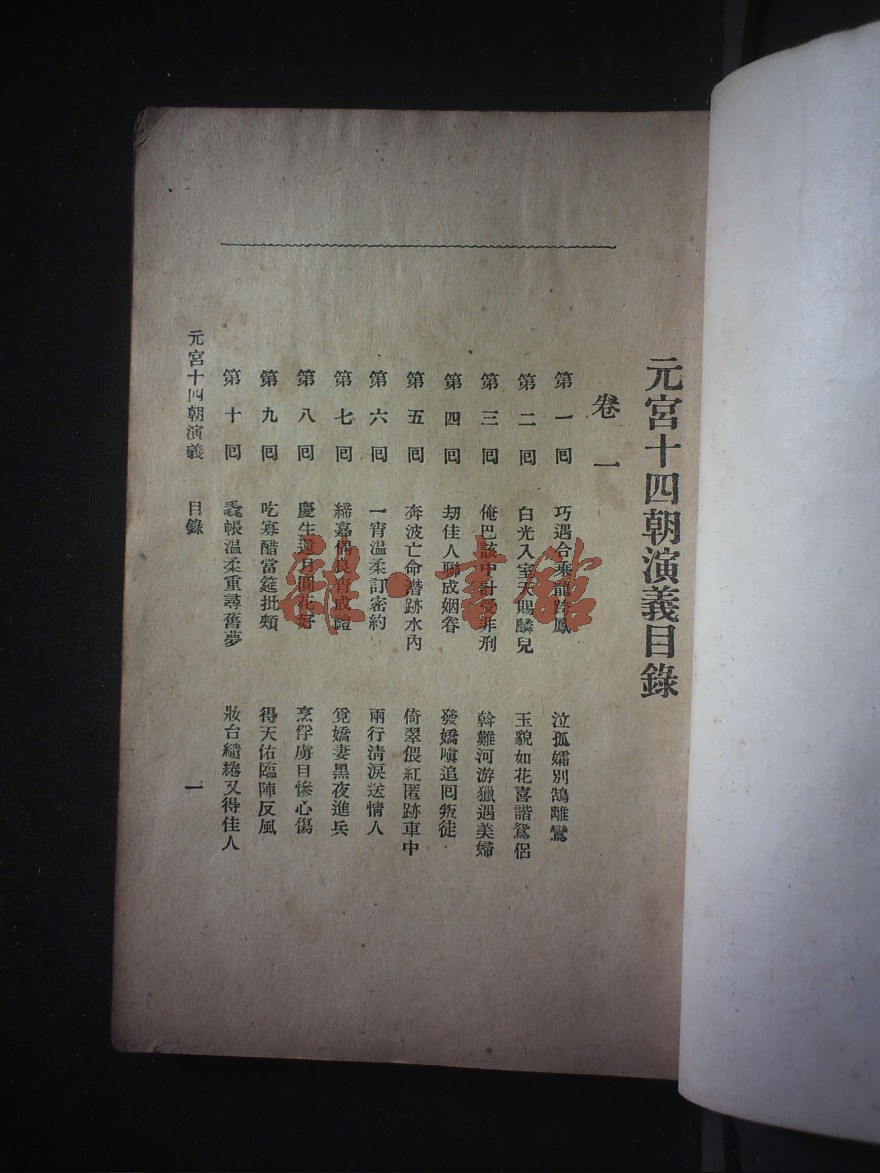 元宮十四朝演義目錄
卷一
第一囘 巧遇合乘龍跨鳳 泣孤孀別鵠離鸞
第二囘 白光入室天賜麟兒 玉貌如花喜諧鴛侶
第三囘 俺巴該中計受非刑 斡難河游獵遇美婦
第四囘 刧佳人聯成姻眷 發嬌嗔追囘叛徒
第五囘 奔波亡命潛跡水內 倚翠偎紅匿跡車中
第六囘 一宵溫柔訂密約 兩行清淚送情人
第七囘 締嘉偶良宵成禮 覓嬌妻黑夜進兵
第八囘 慶生還月圓花好 烹俘虜目慘心傷
第九囘 吃寡醋當筵批頰 得天佑臨陣反風
第十囘 毳帳溫柔重尋舊夢 妝台繾綣又得佳人
元宮十四朝演義 目錄 一
雜·書館